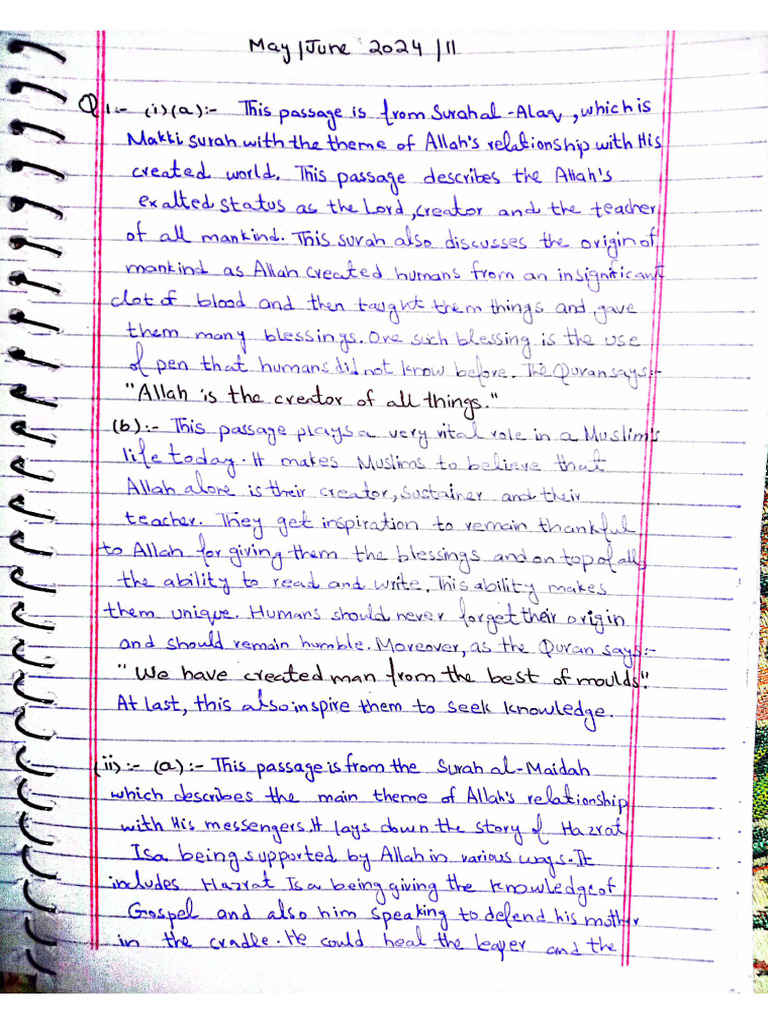 May/June 2024/11
Q1:- (i)(a):- This passage is from Surah al-Alaq, which is
Makki surah with the theme of Allah's relationship with His
created world. This passage describes the Allah's
exalted status as the Lord, creator and the teacher
of all mankind. This surah also discusses the origin of
mankind as Allah created humans from an insignificant
clot of blood and then taught them things and gave
them many blessings. One such blessing is the use
of pen that humans did not know before. The Quran says:-
"Allah is the creator of all things."
(b):- This passage plays a very vital role in a Muslim's
life today. It makes Muslims to believe that
Allah alone is their creator, sustainer and their
teacher. They get inspiration to remain thankful
to Allah for giving them the blessings and on top of all,
the ability to read and write. This ability makes
them unique. Humans should never forget their origin
and should remain humble. Moreover, as the Quran says:-
"We have created man from the best of moulds".
At last, this also inspire them to seek knowledge.
(ii):- (a):- This passage is from the Surah al-Maidah
which describes the main theme of Allah's relationship
with His messengers. It lays down the story of Hazrat
Isa being supported by Allah in various ways. It
includes Hazrat Isa being giving the knowledge of
Gospel and also him speaking to defend his mother
in the cradle. He could heal the leaper and the